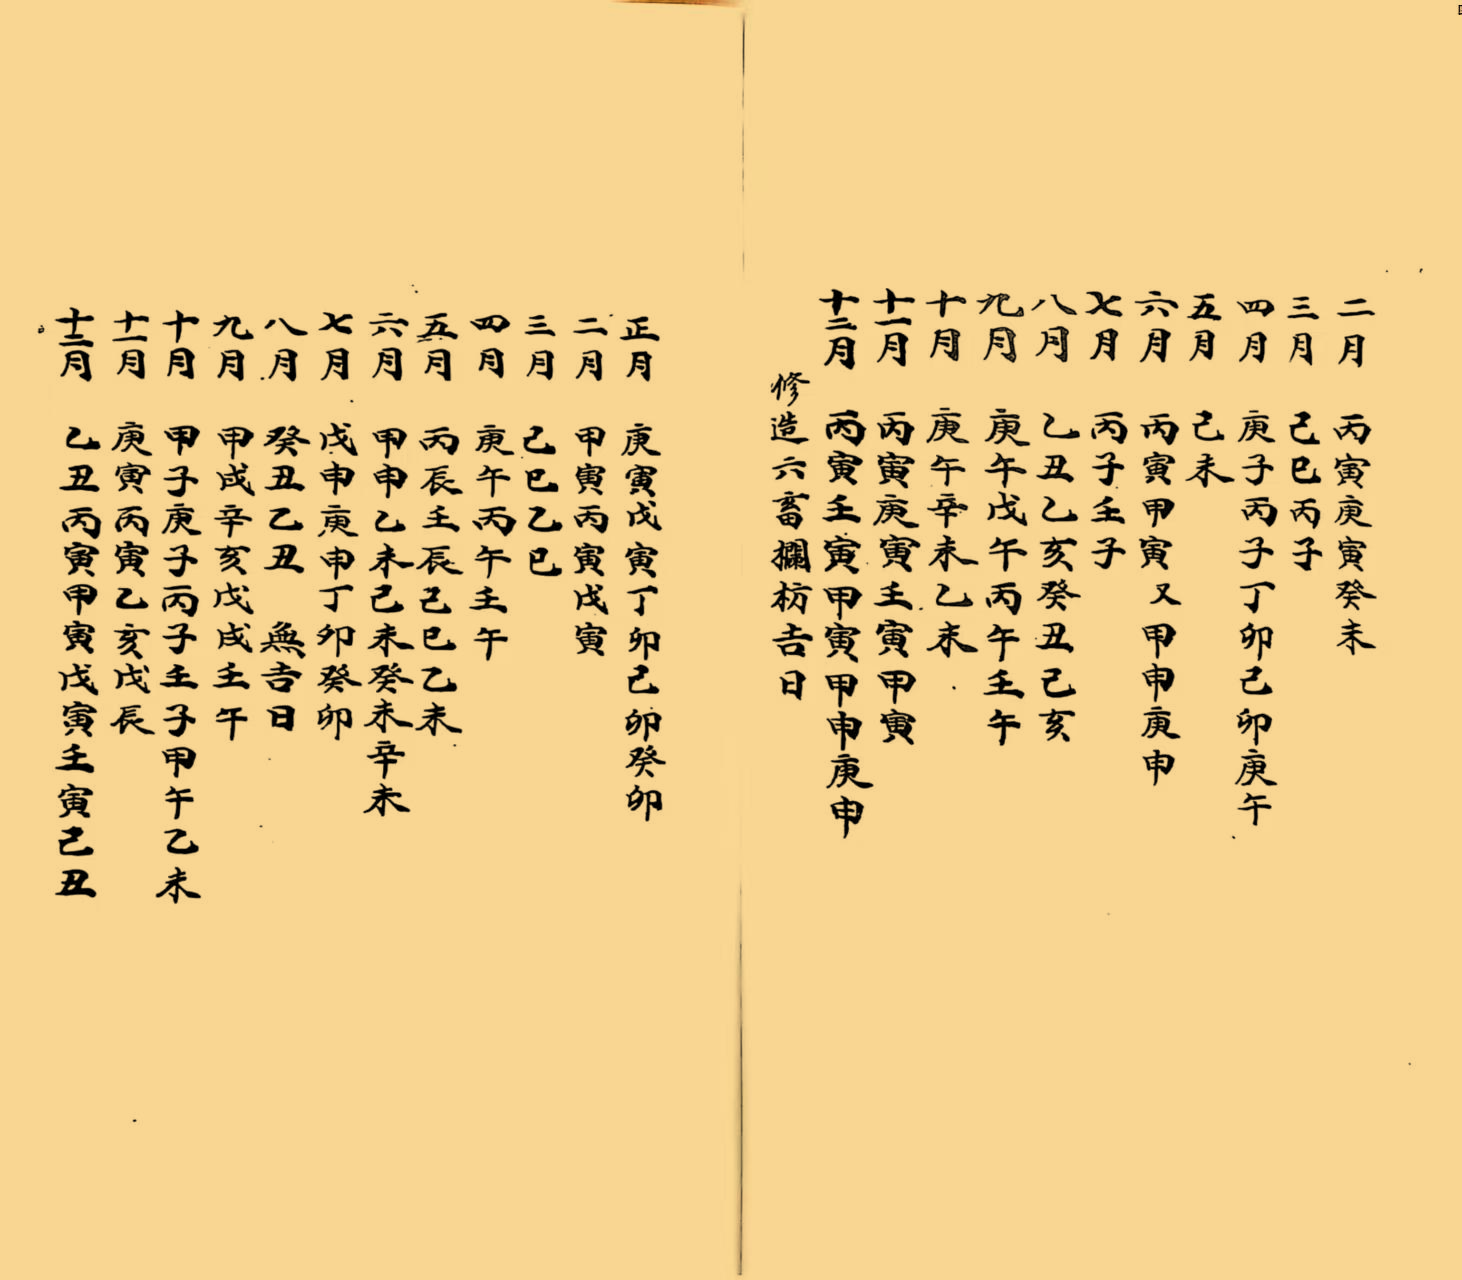 二月 丙寅庚寅癸未
三月 己巳丙子
四月 庚子丙子丁卯己卯庚午
五月 己未
六月 丙寅甲寅又甲申庚申
七月 丙子壬子
八月 乙丑乙亥癸丑己亥
九月 庚午戊午丙午壬午
十月 庚午辛未乙未
十一月 丙寅庚寅壬寅甲寅
十二月 丙寅壬寅甲寅甲申庚申
修造六畜欄枋吉日
正月 庚寅戊寅丁卯己卯癸卯
二月 甲寅丙寅戊寅
三月 己巳乙巳
四月 庚午丙午壬午
五月 丙辰壬辰己巳乙未
六月 甲申乙未己未癸未辛未
七月 戊申庚申丁卯癸卯
八月 癸丑乙丑 無吉日
九月 甲戌辛亥戊戌壬午
十月 甲子庚子丙子壬子甲午乙未
十一月 庚寅丙寅乙亥戊辰
十二月 乙丑丙寅甲寅戊寅壬寅己丑